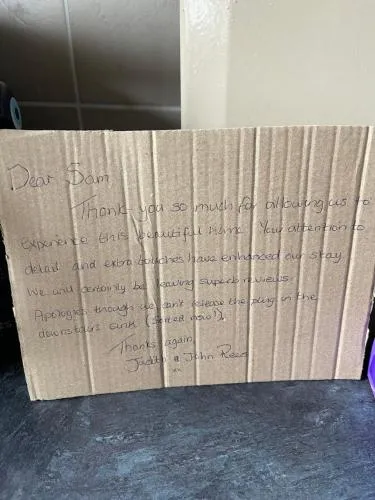 Dear Sam,
Thank you so much for allowing us to
experience this beautiful home. Your attention to
detail and extra touches have enhanced our stay.
We will certainly be leaving superb reviews.
Apologies though we can't release the plug in the
downstairs sink (sorted now!).
Thanks again,
Judith & John Rees
xx